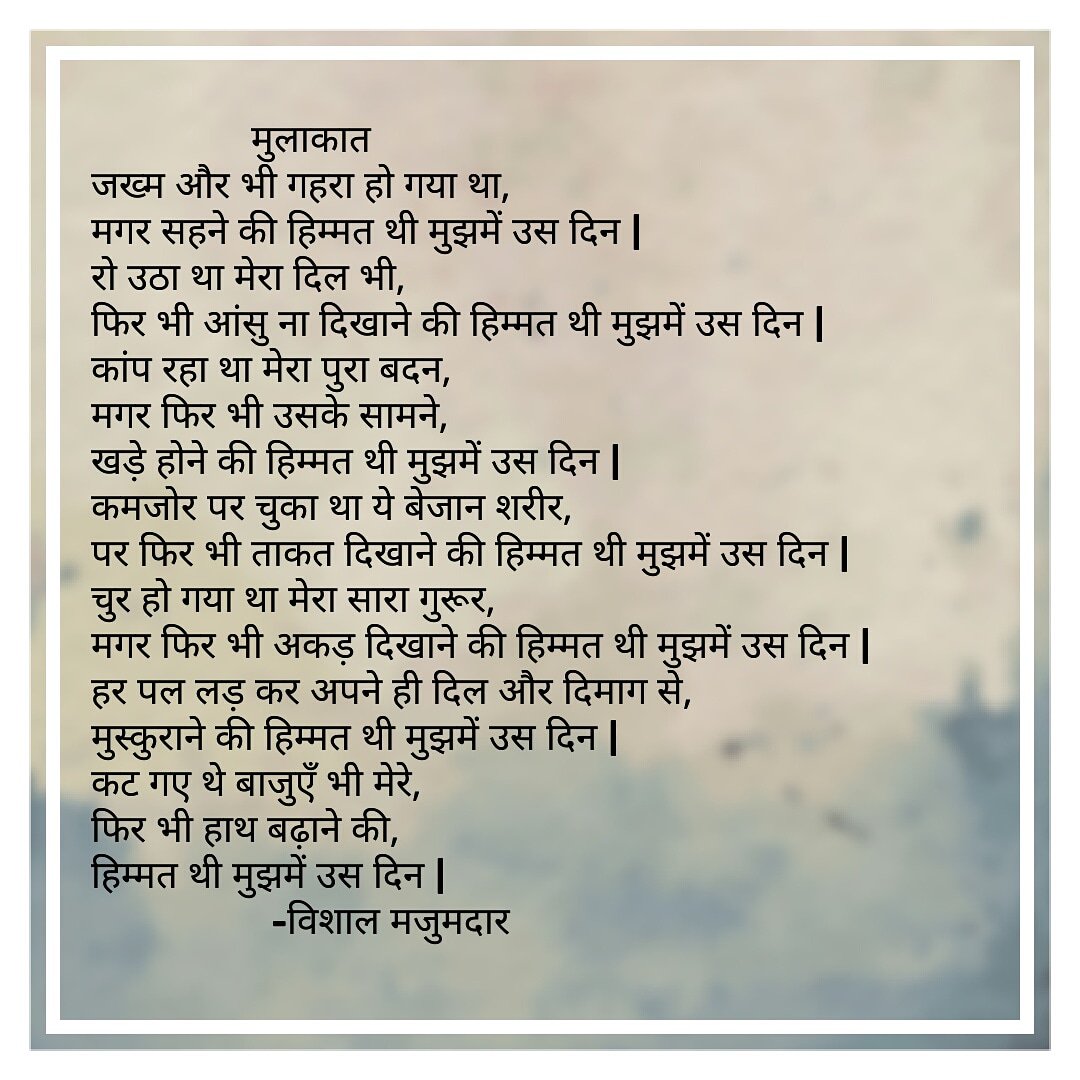 मुलाकात
जख्म और भी गहरा हो गया था,
मगर सहने की हिम्मत थी मुझमें उस दिन |
रो उठा था मेरा दिल भी,
फिर भी आंसु ना दिखाने की हिम्मत थी मुझमें उस दिन |
कांप रहा था मेरा पुरा बदन,
मगर फिर भी उसके सामने,
खड़े होने की हिम्मत थी मुझमें उस दिन |
कमजोर पर चुका था ये बेजान शरीर,
पर फिर भी ताकत दिखाने की हिम्मत थी मुझमें उस दिन |
चुर हो गया था मेरा सारा गुरूर,
मगर फिर भी अकड़ दिखाने की हिम्मत थी मुझमें उस दिन |
हर पल लड़ कर अपने ही दिल और दिमाग से,
मुस्कुराने की हिम्मत थी मुझमें उस दिन |
कट गए थे बाजुएँ भी मेरे,
फिर भी हाथ बढ़ाने की,
हिम्मत थी मुझमें उस दिन |
-विशाल मजुमदार